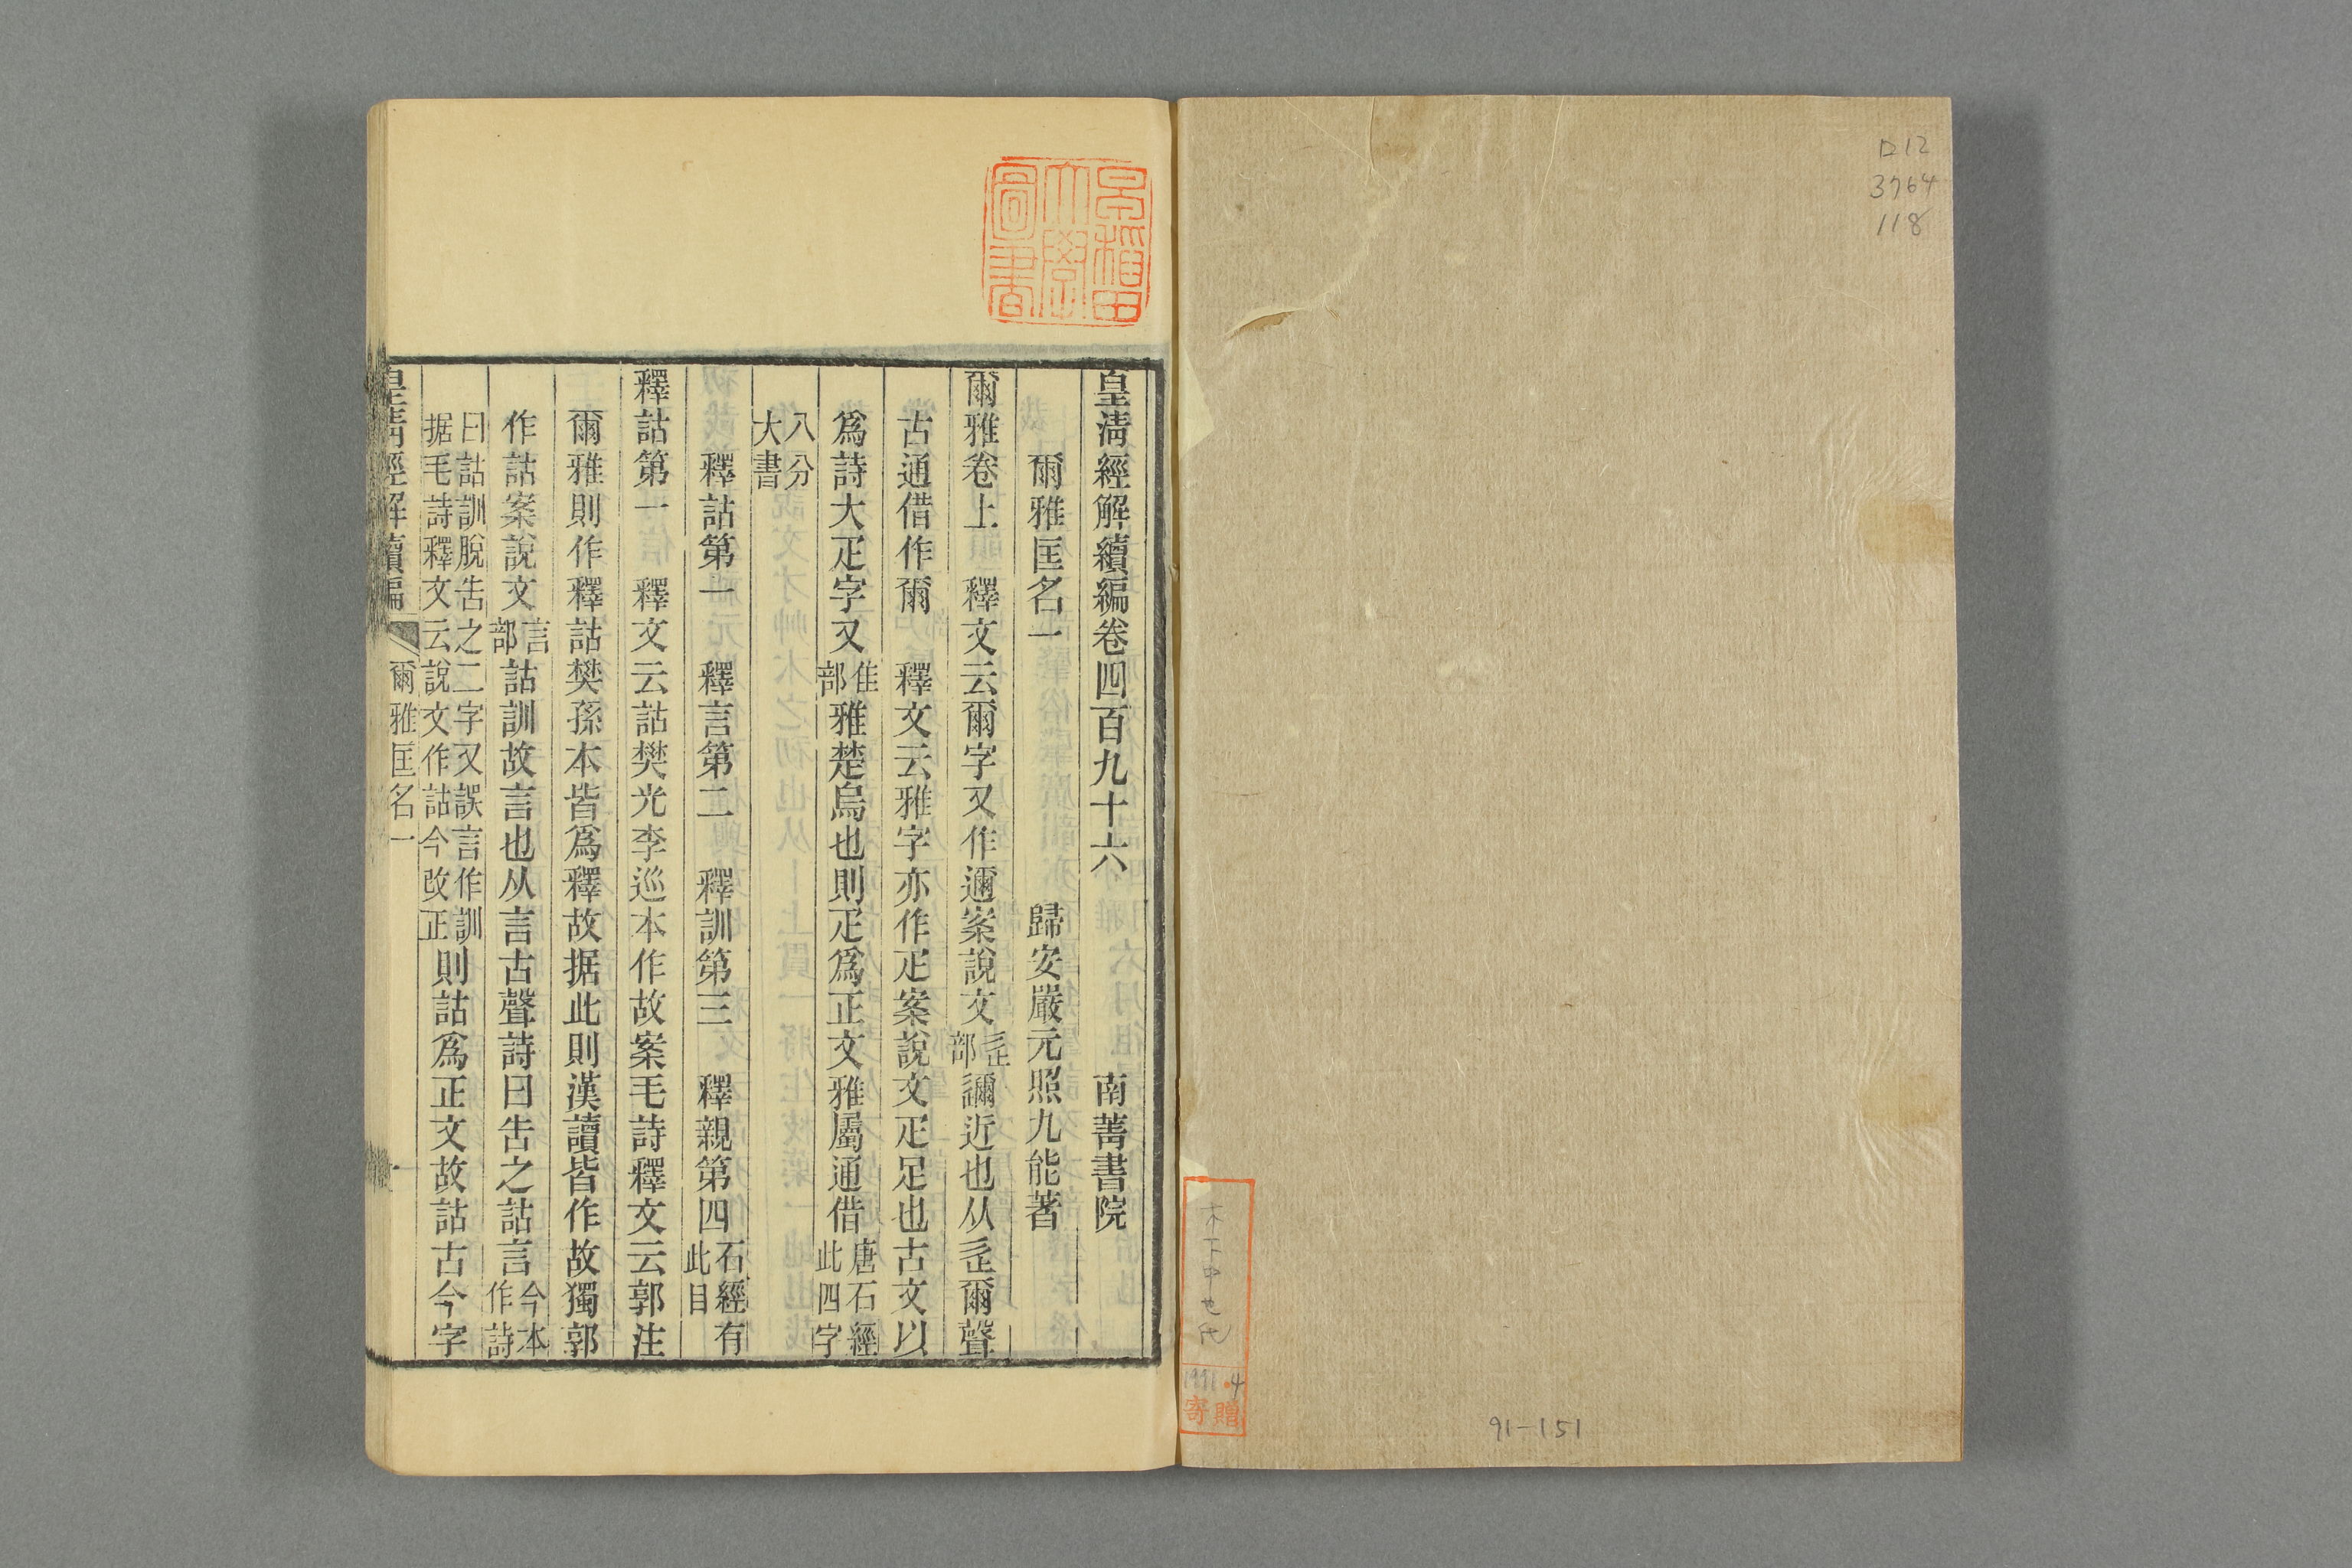 ロ12
3764
118
木下中也氏
1991.4
寄贈
91-151
早稲田大學圖書
皇淸經解續編卷四百九十六 南菁書院
爾雅匡名一 歸安嚴元照九能著
爾雅卷上 釋文云爾字又作邇案說文辵部邇近也从辵爾聲
古通借作爾 釋文云雅字亦作疋案說文疋足也古文以
爲詩大疋字又隹部雅楚烏也則疋爲正文雅屬通借唐石經此四字
八分大書
釋詁第一 釋言第二 釋訓第三 釋親第四石經有此目
釋詁第一 釋文云詁樊光李巡本作故案毛詩釋文云郭注
爾雅則作釋詁樊孫本皆爲釋故据此則漢讀皆作故獨郭
作詁案說文言部詁訓故言也从言古聲詩曰告之詁言今本作詩
曰詁訓脫告之二字又誤言作訓据毛詩釋文云說文作詁今改正則詁爲正文故詁古今字
皇淸經解續編 爾雅匡名一 一